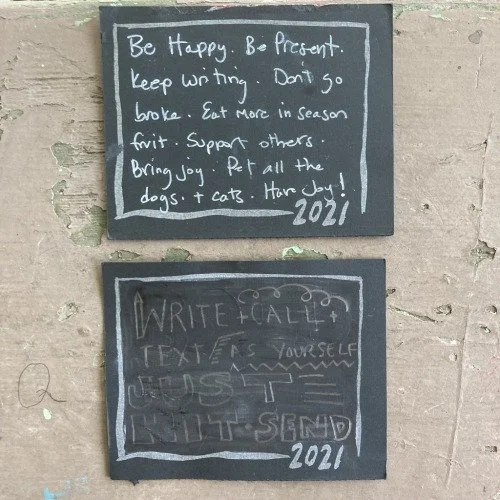 Be Happy. Be Present.
Keep writing. Don't go
broke. Eat more in season
fruit. Support others.
Bring joy. Pet all the
dogs. + cats. Have Joy!
2021
WRITE + CALL +
TEXT AS YOURSELF
JUST
HIT SEND
2021